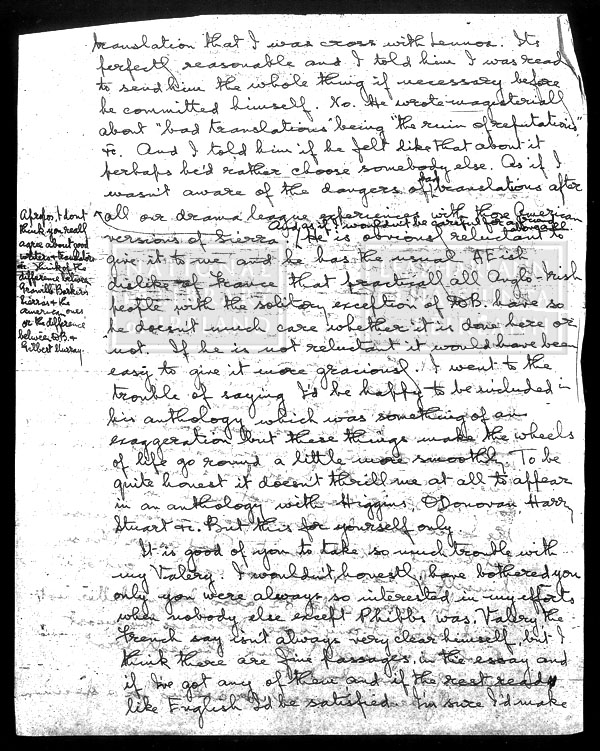 translation that I was cross with Lennox. Its
perfectly reasonable and I told him I was ready
to send him the whole thing if necessary before
he committed himself. No. He wrote magisterially
about "bad translations" being "the ruin of reputations"
&c. And I told him if he felt like that about it
perhaps he'd rather choose somebody else. As if I
wasn't aware of the dangers of bad translations after
all our drama league experiences with those American
versions of Sierra. And as if I wouldn't be careful for
He is obviously reluctant to
give it to me and he has the usual A Irish
dislike of France that practically all Anglo-Irish
people with the solitary exception of have so
he doesn't much care whether it is done here or
not. If he is not reluctant it would have been
easy to give it more graciously. I went to the
trouble of saying I'd be happy to be included in
his anthology which was something of an
exaggeration but these things make the wheels
of life go round a little more smoothly. To be
quite honest it doesn't thrill me at all to appear
in an anthology with Higgins, O'Donovan, Harry
Stuart &c. But this for yourself only.
It is good of you to take so much trouble with
my Valery. I wouldn't, honestly, have bothered you
only you were always so interested in my efforts
when nobody else except Phibbs was. Valery, the
French say isn't always very clear himself, but I
think there are fine passages in the essay and
if I've got any of them and if the rest reads
like English I'd be satisfied. I'm sure I'd make
Apropos, I don't
think you really
agree about good
writers & translators
&c. Think of the
difference between
Granville Barker's
Sierras & the
American ones
or the difference
between &
Gilbert Murray.
NATIONAL
LIBRARY